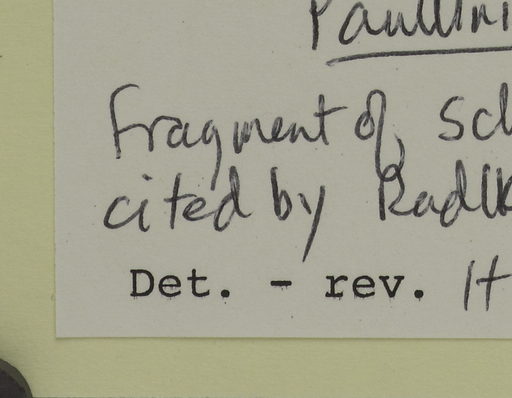 Paullini
Fragment of Sch
cited by Radlk
Det. - rev. H